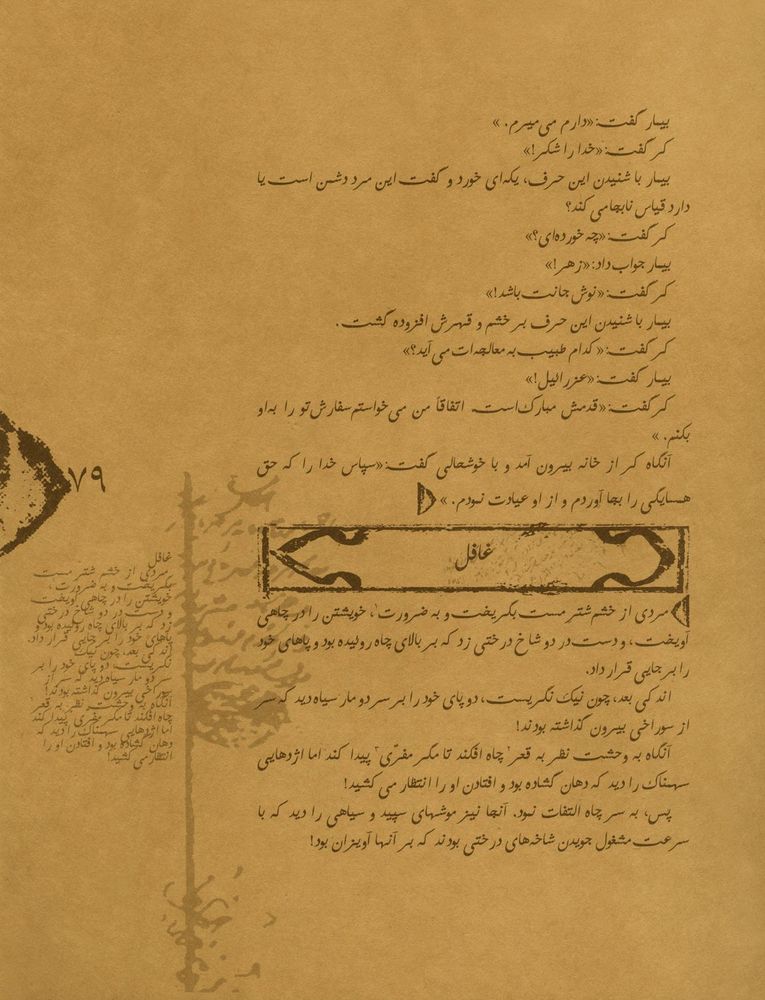 بیمار گفت: «دارم می‌میرم.»
کر گفت: «خدا را شکر!»
بیمار با شنیدن این حرف، یکه‌ای خورد و گفت این مرد دشمن است یا
دارد قیاس نابجا می کند؟
کر گفت: «چه خورده‌ای؟»
بیمار جواب داد: «زهر!»
کر گفت: «نوش جانت باشد!»
بیمار با شنیدن این حرف بر خشم و قهرش افزوده گشت.
کر گفت: «کدام طبیب به معالجه‌ات می آید؟»
بیمار گفت: «عزرائیل!»
کر گفت: «قدمش مبارک است. اتفاقاً من می‌خواستم سفارش تو را به او
بکنم.»
آنگاه کر از خانه بیرون آمد و با خوشحالی گفت: «سپاس خدا را که حق
همسایگی را بجا آوردم و از او عیادت نمودم.»
۷۹
غافل
مردی از خشم شتر مست بگریخت و به ضرورت۱، خویشتن را در چاهی
آویخت، و دست در دو شاخ درختی زد که بر بالای چاه روئیده بود و پاهای خود
را بر جایی قرار داد.
اندکی بعد، چون نیک نگریست، دو پای خود را بر سر دو مار سیاه دید که سر
از سوراخی بیرون گذاشته بودند!
آنگاه به وحشت نظر به قعر۲ چاه افکند تا مگر مفرّی۳ پیدا کند اما اژدهایی
سهمناک را دید که دهان گشاده بود و افتادن او را انتظار می کشید!
پس، به سر چاه التفات نمود. آنجا نیز موشهای سپید و سیاهی را دید که با
سرعت مشغول جویدن شاخه‌های درختی بودند که بر آنها آویزان بود!
غافل
مردی از خشم شتر مست
بگریخت و به ضرورت،
خویشتن را در چاهی آویخت
و دست در دو شاخ درختی
زد که بر بالای چاه روئیده بود و
پاهای خود را بر جایی قرار داد.
اندکی بعد، چون نیک
نگریست، دو پای خود را بر
سر دو مار سیاه دید که سر از
سوراخی بیرون گذاشته بودند!
آنگاه به وحشت نظر به قعر
چاه افکند تا مگر مفرّی پیدا کند
اما اژدهایی سهمناک را دید که
دهان گشاده بود و افتادن او را
انتظار می کشید!